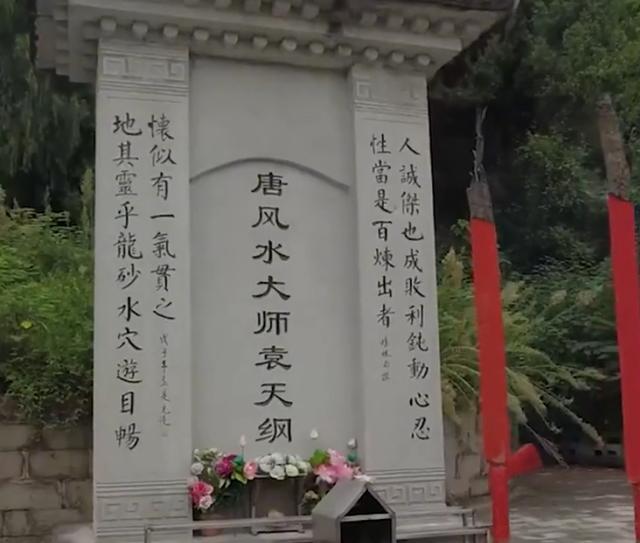 人誠傑也成敗利鈍動心忍
性當是百煉出者
唐风水大师袁天纲
地其靈乎龍砂水穴遊目暢
懷似有一氣貫之